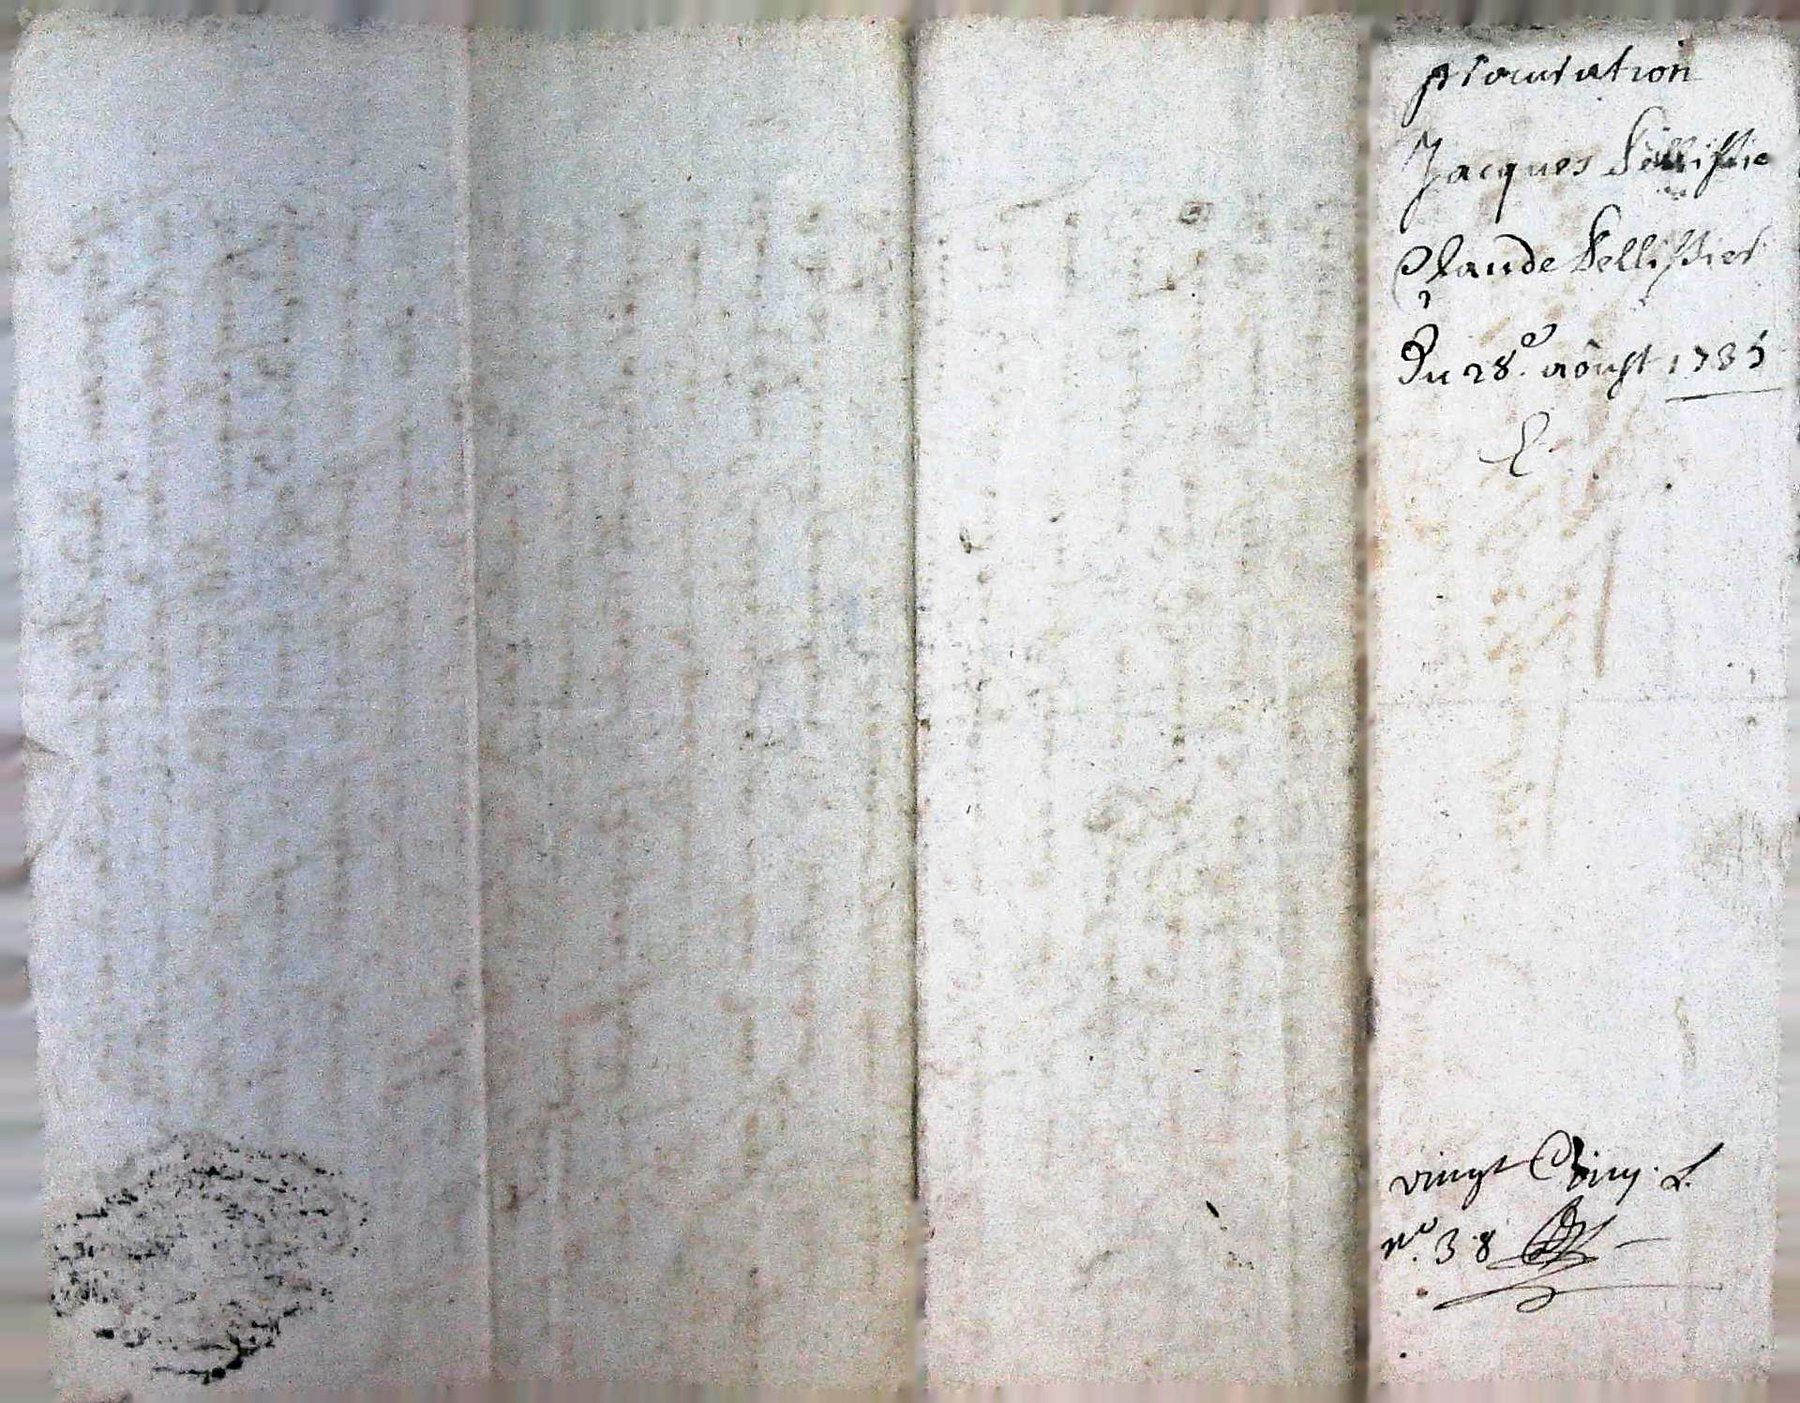 procuration
Jacques Pellissie
Claude Pellissier
Du 28e. aoûst 1735
vingt Cinq L.
no. 38